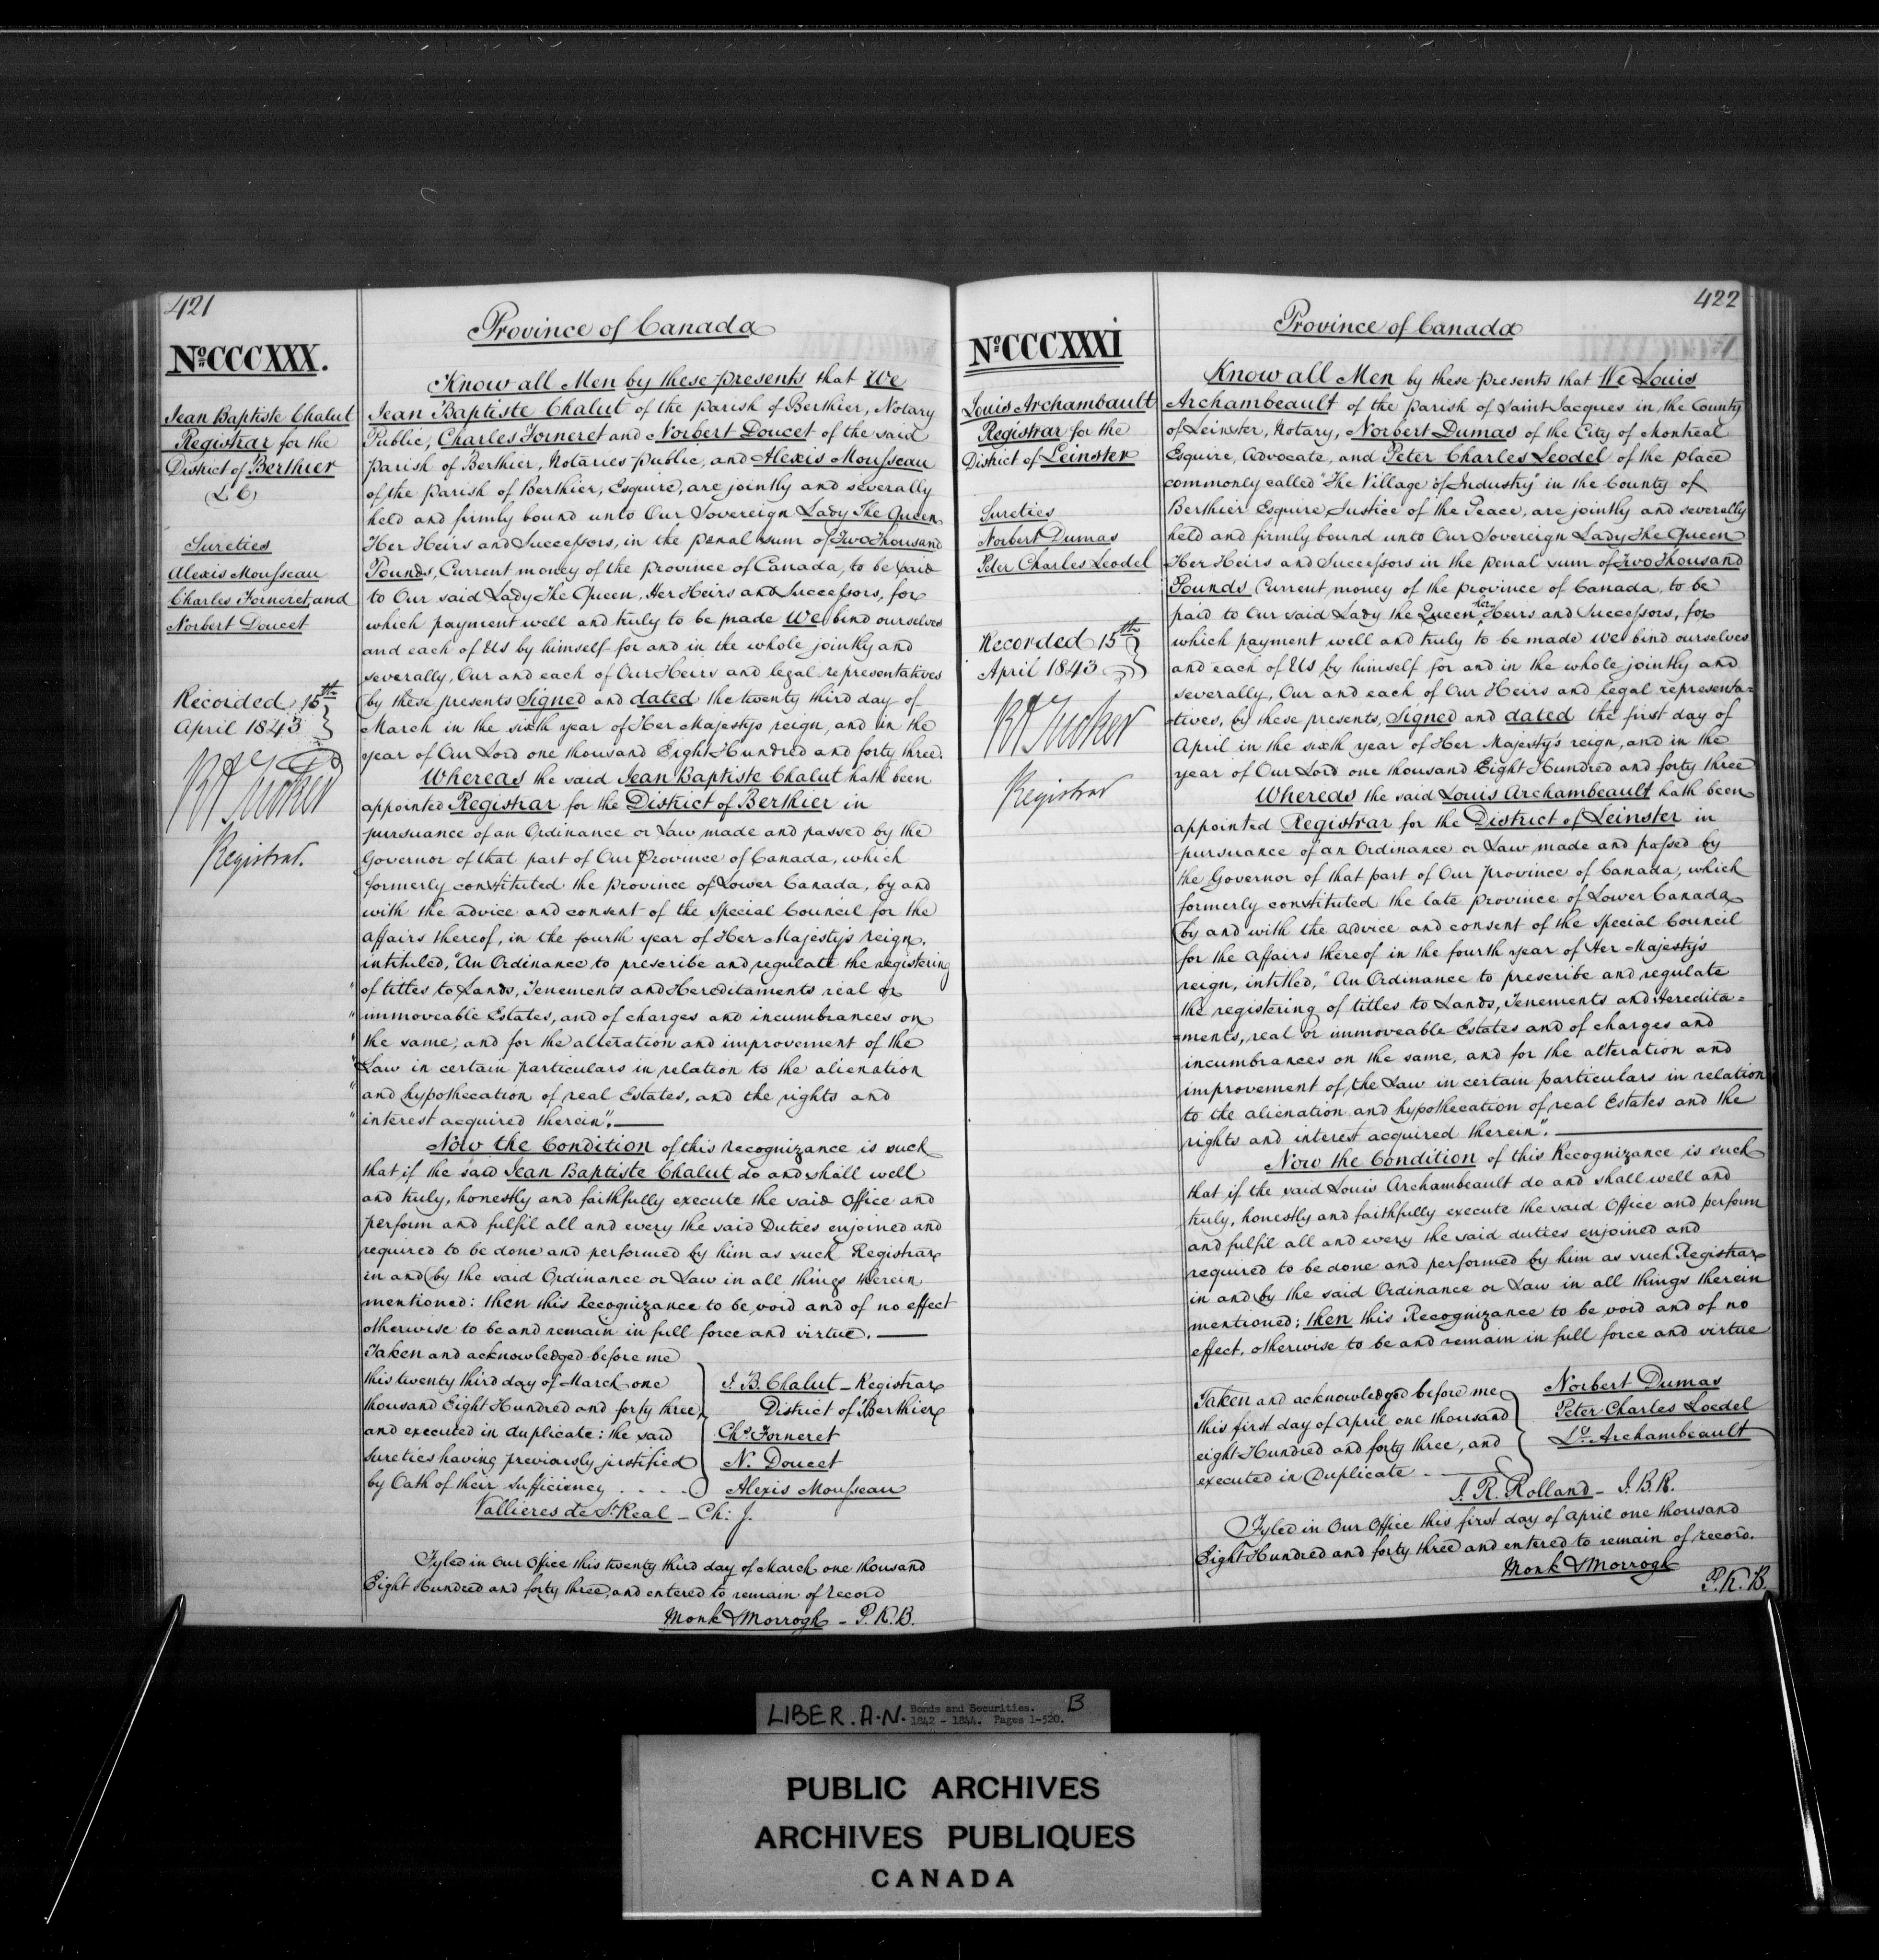 421
Nº CCCXXX.
Jean Baptiste Chalut
Registrar for the
District of Berthier
(L.C)
Sureties
Alexis Mousseau
Charles Forneret, and
Norbert Doucet
Recorded, 15th
April 1843
RA Tucker
Registrar.
Province of Canada
Know all Men by these presents that We
Jean Baptiste Chalut of the parish of Berthier, Notary
Public, Charles Forneret and Norbert Doucet of the said
parish of Berthier, Notaries public, and Alexis Mousseau
of the parish of Berthier, Esquire, are jointly and severally
held and firmly bound unto Our Sovereign Lady The Queen
Her Heirs and Successors, in the penal sum of Two Thousand
Pounds, Current money of the province of Canada, to be paid
to Our said Lady The Queen, Her Heirs and Successors, for
which payment well and truly to be made We bind ourselves
and each of Us by himself for and in the whole jointly and
severally, Our and each of Our Heirs and legal representatives
by these presents Signed and dated the twenty third day of
March in the sixth year of Her Majesty's reign, and in the
year of Our Lord one thousand Eight Hundred and forty three.
Whereas the said Jean Baptiste Chalut hath been
appointed Registrar for the District of Berthier in
pursuance of an Ordinance or Law made and passed by the
Governor of that part of Our Province of Canada, which
formerly constituted the province of Lower Canada, by and
with the advice and consent of the Special Council for the
affairs thereof, in the fourth year of Her Majesty's reign,
intituled, "An Ordinance to prescribe and regulate the registering
" of titles to Lands, Tenements and Hereditaments real or
" immoveable Estates, and of charges and incumbrances on
" the same; and for the alteration and improvement of the
" Law in certain particulars in relation to the alienation
" and hypothecation of real Estates, and the rights and
" interest acquired therein".
Now the Condition of this recognizance is such
that if the said Jean Baptiste Chalut do and shall well
and truly, honestly and faithfully execute the said Office and
perform and fulfil all and every the said Duties enjoined and
required to be done and performed by him as such Registrar
in and by the said Ordinance or Law in all things therein
mentioned: then this Recognizance to be void and of no effect
otherwise to be and remain in full force and virtue.
Taken and acknowledged before me
this twenty third day of March one
thousand Eight Hundred and forty three,
and executed in duplicate: the said
Sureties having previously justified
by Oath of their sufficiency . . . .
J. B. Chalut - Registrar
District of Berthier
Chs. Forneret
N. Doucet
Alexis Mousseau
Vallieres de St Real - Ch: J.
Fyled in Our Office this twenty third day of March one thousand
Eight Hundred and forty three, and entered to remain of record
Monk & Morrogh - P. K. B.
422
Nº CCCXXXI
Louis Archambault
Registrar for the
District of Leinster
Sureties
Norbert Dumas
Peter Charles Leodel
Recorded 15th
April 1843
RA Tucker
Registrar
Province of Canada
Know all Men by these presents that We Louis
Archambeault of the parish of Saint Jacques in the County
of Leinster, Notary, Norbert Dumas of the City of Montreal
Esquire, Advocate, and Peter Charles Leodel of the place
commonly called "The Village of Industry" in the County of
Berthier Esquire, Justice of the Peace, are jointly and severally
held and firmly bound unto Our Sovereign Lady The Queen
Her Heirs and Successors in the penal sum of Two Thousand
Pounds Current money of the province of Canada, to be
paid to Our said Lady the Queen her Heirs and Successors, for
which payment well and truly to be made We bind ourselves
and each of Us by himself for and in the whole jointly and
severally, Our and each of Our Heirs and legal representa=
=tives, by these presents, Signed and dated the first day of
April in the sixth year of Her Majesty's reign, and in the
year of Our Lord one thousand Eight Hundred and forty three
Whereas the said Louis Archambeault hath been
appointed Registrar for the District of Leinster in
pursuance of an Ordinance or Law made and passed by
the Governor of that part of Our province of Canada, which
formerly constituted the late province of Lower Canada
by and with the advice and consent of the Special Council
for the Affairs thereof in the fourth year of Her Majesty's
reign, intitled, "An Ordinance to prescribe and regulate
the registering of titles to Lands, Tenements and Heredita=
=ments, real or immoveable Estates and of charges and
incumbrances on the same, and for the alteration and
improvement of the Law in certain particulars in relation
to the alienation and hypothecation of real Estates and the
rights and interest acquired therein".
Now the Condition of this Recognizance is such
that if the said Louis Archambeault do and shall well and
truly, honestly and faithfully execute the said Office and perform
and fulfil all and every the said duties enjoined and
required to be done and performed by him as such Registrar
in and by the said Ordinance or Law in all things therein
mentioned; then this Recognizance to be void and of no
effect, otherwise to be and remain in full force and virtue
Taken and acknowledged before me
this first day of April one thousand
eight Hundred and forty three, and
executed in Duplicate
Norbert Dumas
Peter Charles Loedel
Ls. Archambeault
J. R. Rolland - J.B.R.
Fyled in Our Office this first day of April one thousand
Eight Hundred and forty three and entered to remain of record.
Monk & Morrogh
P. K. B.
LIBER. A.N. Bonds and Securities. B
1842 - 1844. Pages 1-520.
PUBLIC ARCHIVES
ARCHIVES PUBLIQUES
CANADA